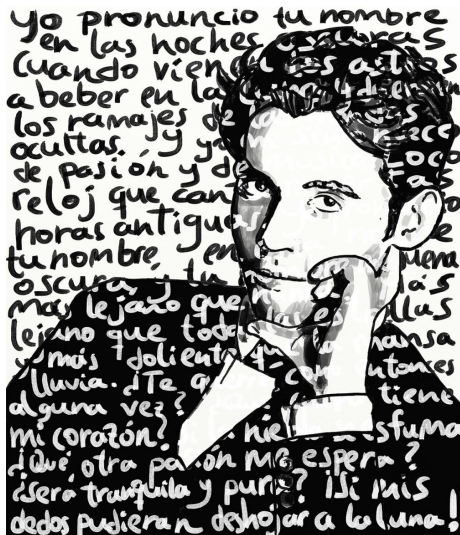 yo pronuncio tu nombre
en las noches oscuras
cuando vienen los astros
a beber en la luna
los ramajes de
ocultas. y yo
de pasión y de
reloj que can
horas antiguas
tu nombre, en
oscura, y tu
más lejano que las estrellas
lejano que todas mansa
y más doliente que la
lluvia. ¿Te como entonces
alguna vez? tiene
mi corazón? Si la niebla esfuma
¿Qué otra pasión me espera?
¿Será tranquila y pura? ¡Si mis
dedos pudieran deshojar a la luna!